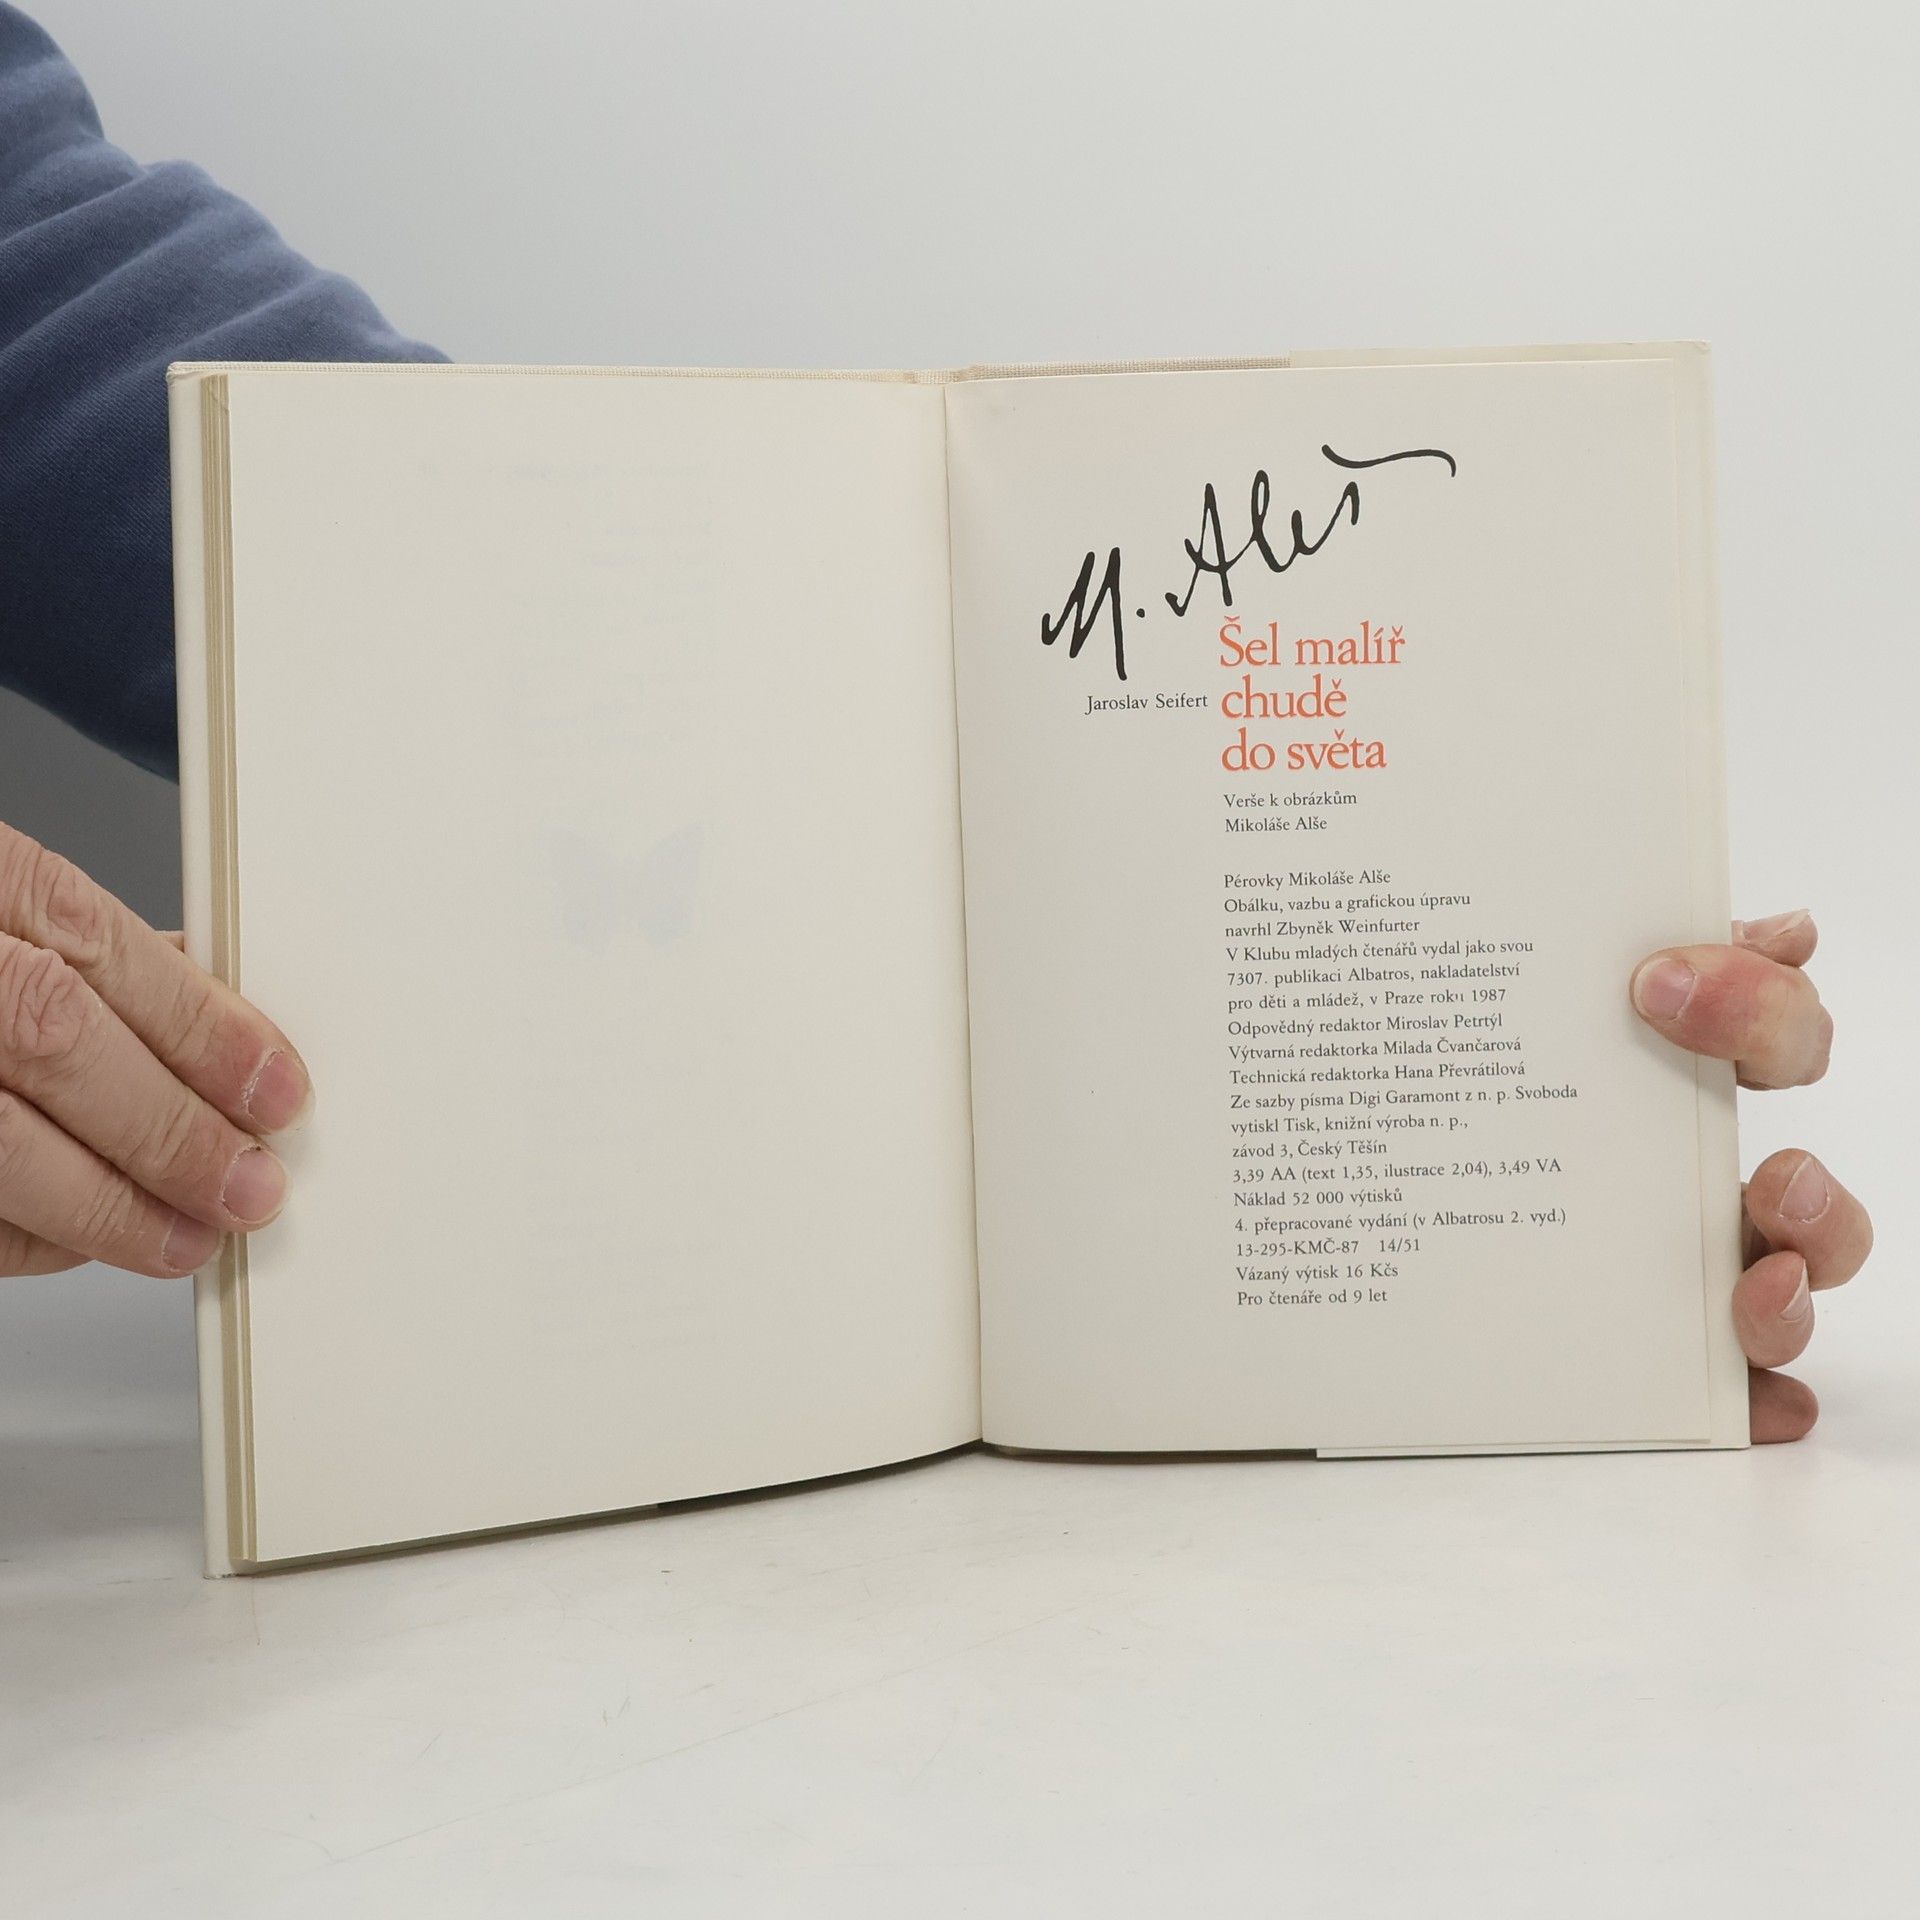 M. Aleš
Šel malíř
Jaroslav Seifert chudě
do světa
Verše k obrázkům
Mikoláše Alše
Pérovky Mikoláše Alše
Obálku, vazbu a grafickou úpravu
navrhl Zbyněk Weinfurter
V Klubu mladých čtenářů vydal jako svou
7307. publikaci Albatros, nakladatelství
pro děti a mládež, v Praze roku 1987
Odpovědný redaktor Miroslav Petrtýl
Výtvarná redaktorka Milada Čvančarová
Technická redaktorka Hana Převrátilová
Ze sazby písma Digi Garamont z n. p. Svoboda
vytiskl Tisk, knižní výroba n. p.,
závod 3, Český Těšín
3,39 AA (text 1,35, ilustrace 2,04), 3,49 VA
Náklad 52 000 výtisků
4. přepracované vydání (v Albatrosu 2. vyd.)
13-295-KMČ-87 14/51
Vázaný výtisk 16 Kčs
Pro čtenáře od 9 let